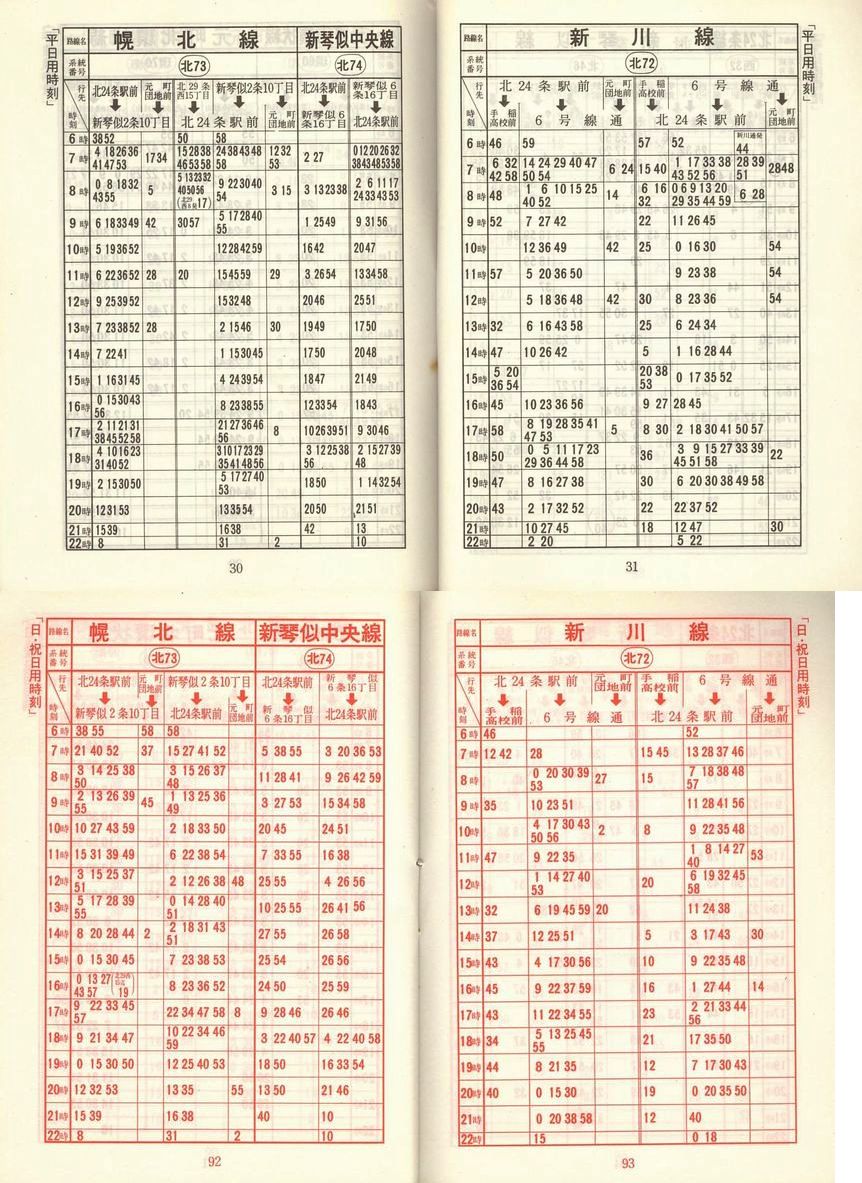 「平日用時刻」
路線名 幌北線 新琴似中央線
系統番号 北73 北74
行先 北24条駅前 元町団地前 北29条西15丁目 新琴似2条10丁目 北24条駅前 新琴似6条16丁目
時刻 新琴似2条10丁目 北24条駅前 元町団地前 新琴似6条16丁目 北24条駅前
6時 38 52 50 58
7時 4 18 26 36 41 47 53 17 34 15 28 38 46 53 58 24 38 43 48 58 12 32 53 2 27 0 12 20 26 32 38 43 48 53 58
8時 0 8 18 32 43 55 5 5 13 23 32 40 50 56 (北29西8発17) 9 22 30 40 54 3 15 3 13 23 38 2 6 11 17 24 33 43 53
9時 6 18 33 49 42 30 57 5 17 28 40 55 1 25 49 9 31 56
10時 5 19 36 52 12 28 42 59 16 42 20 47
11時 6 22 36 52 28 20 15 45 59 29 3 26 54 13 34 58
12時 9 25 39 52 15 32 48 20 46 25 51
13時 7 23 38 52 28 2 15 46 30 19 49 17 50
14時 7 22 41 1 15 30 45 17 50 20 48
15時 1 16 31 45 4 24 39 54 18 47 21 49
16時 0 15 30 43 56 8 23 38 55 12 33 54 18 43
17時 2 11 21 31 38 45 52 58 21 27 36 46 56 8 10 26 39 51 9 30 46
18時 4 10 16 23 31 40 52 3 10 17 23 29 35 41 48 56 3 12 25 38 56 2 15 27 39 48
19時 2 15 30 50 5 17 27 40 53 18 50 1 14 32 54
20時 12 31 53 13 35 54 20 50 21 51
21時 15 39 16 38 42 13
22時 8 31 2 10
30
「平日用時刻」
路線名 新川線
系統番号 北72
行先 北24条駅前 元町団地前 手稲高校前 6号線通
時刻 手稲高校前 6号線通 北24条駅前 元町団地前
6時 46 59 57 52 新川通発 44
7時 6 32 42 58 14 24 29 40 47 50 54 6 24 15 40 1 17 33 38 43 52 56 28 39 51 28 48
8時 48 1 6 10 15 25 40 52 14 6 16 32 0 6 9 13 20 29 35 44 59 6 28
9時 52 7 27 42 22 11 26 45
10時 12 36 49 42 25 0 16 30 54
11時 57 5 20 36 50 9 23 38 54
12時 5 18 36 48 42 30 8 23 36 54
13時 32 6 16 43 58 25 6 24 34
14時 47 10 26 42 5 1 16 28 44
15時 5 20 36 54 20 38 53 0 17 35 52
16時 45 10 23 36 56 9 27 28 45
17時 58 8 19 28 35 41 47 53 5 8 30 2 18 30 41 50 57
18時 50 0 5 11 17 23 29 36 44 58 36 3 9 15 27 33 39 45 51 58 22
19時 47 8 16 27 38 30 6 20 30 38 49 58
20時 43 2 17 32 52 22 22 37 52
21時 10 27 45 18 12 47 30
22時 2 20 5 22
31
「日・祝日用時刻」
路線名 幌北線 新琴似中央線
系統番号 北73 北74
行先 北24条駅前 元町団地前 新琴似2条10丁目 北24条駅前 新琴似6条16丁目
時刻 新琴似2条10丁目 北24条駅前 元町団地前 新琴似6条16丁目 北24条駅前
6時 38 55 58 58
7時 21 40 52 37 15 27 41 52 5 38 55 3 20 36 53
8時 3 14 25 38 50 3 15 26 37 48 11 28 41 9 26 42 59
9時 2 13 26 39 55 45 1 13 25 36 49 3 27 53 15 34 58
10時 10 27 43 59 2 18 33 50 20 45 24 51
11時 15 31 39 49 6 22 38 54 7 33 55 16 38
12時 3 15 25 37 51 2 12 26 38 48 25 55 4 26 56
13時 5 17 28 39 55 0 14 28 40 51 10 25 55 26 41 56
14時 8 20 28 44 2 2 18 31 43 51 27 55 26 58
15時 0 15 30 45 7 23 38 53 25 54 26 56
16時 0 13 27 43 57 (19) 8 23 36 52 24 50 25 59
17時 9 22 33 45 57 22 34 47 58 8 9 28 46 26 46
18時 9 21 34 47 10 22 34 46 59 3 22 40 57 4 22 40 58
19時 0 15 30 50 12 25 40 53 18 50 16 33 54
20時 12 32 53 13 35 55 13 50 21 46
21時 15 39 16 38 40 10
22時 8 31 2 10
92
「日・祝日用時刻」
路線名 新川線
系統番号 北72
行先 北24条駅前 元町団地前 手稲高校前 6号線通
時刻 手稲高校前 6号線通 北24条駅前 元町団地前
6時 46 52
7時 12 42 28 15 45 13 28 37 46
8時 0 20 30 39 53 27 15 7 18 38 48 57
9時 35 10 23 51 11 28 41 56
10時 4 17 30 43 50 56 2 8 9 22 35 48
11時 47 9 22 35 1 8 14 27 40 53
12時 1 14 27 40 53 20 6 19 32 45 58
13時 32 6 19 45 59 20 11 24 38
14時 37 12 25 51 5 3 17 43 30
15時 43 4 17 30 56 10 9 22 35 48
16時 45 9 22 37 59 16 1 27 44 14
17時 43 11 22 34 55 23 2 21 33 44 56
18時 34 5 13 25 45 55 21 17 35 50
19時 44 8 21 35 12 7 17 30 43
20時 40 0 15 30 19 0 20 35 50
21時 0 20 38 58 12 40
22時 15 0 18
93